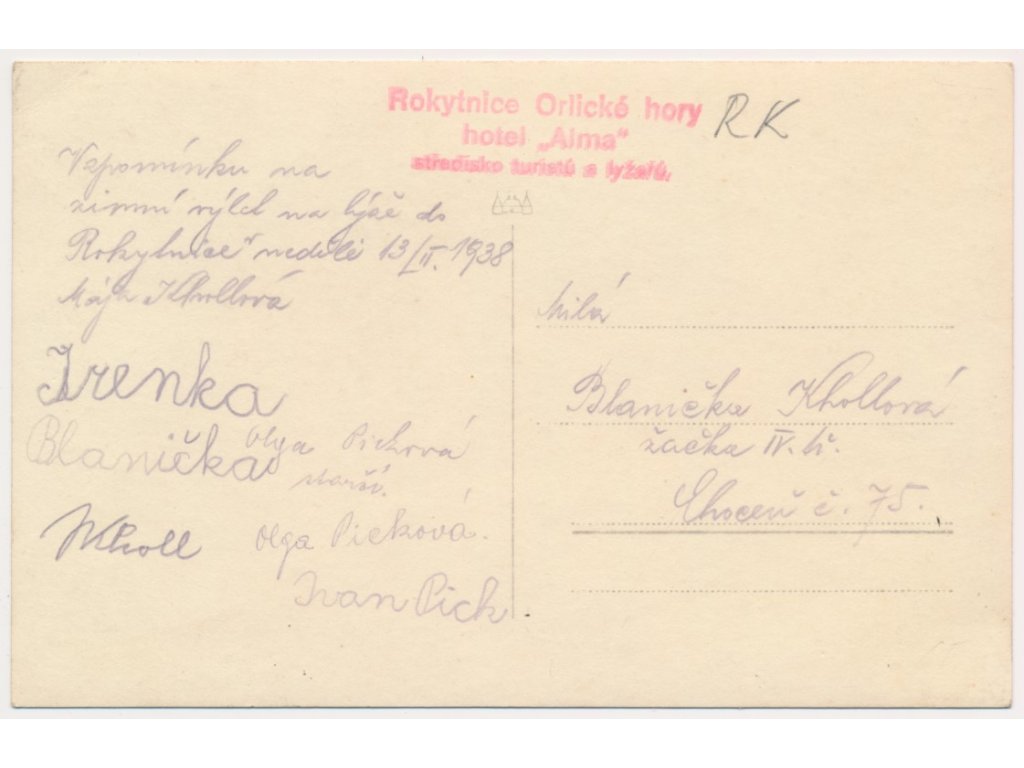 Rokytnice Orlické hory
hotel „Alma"
středisko turistů a lyžařů.
RK
Vzpomínku na
zimní výlet na lýže do
Rokytnice v neděli 13/II. 1938
Mája Khollová
Irenka
Blanička
Olga Picková
starší.
Kholl
Olga Picková.
Ivan Pick
Milá
Blanička Khollová
žačka IV. tř.
Choceň č. 75.